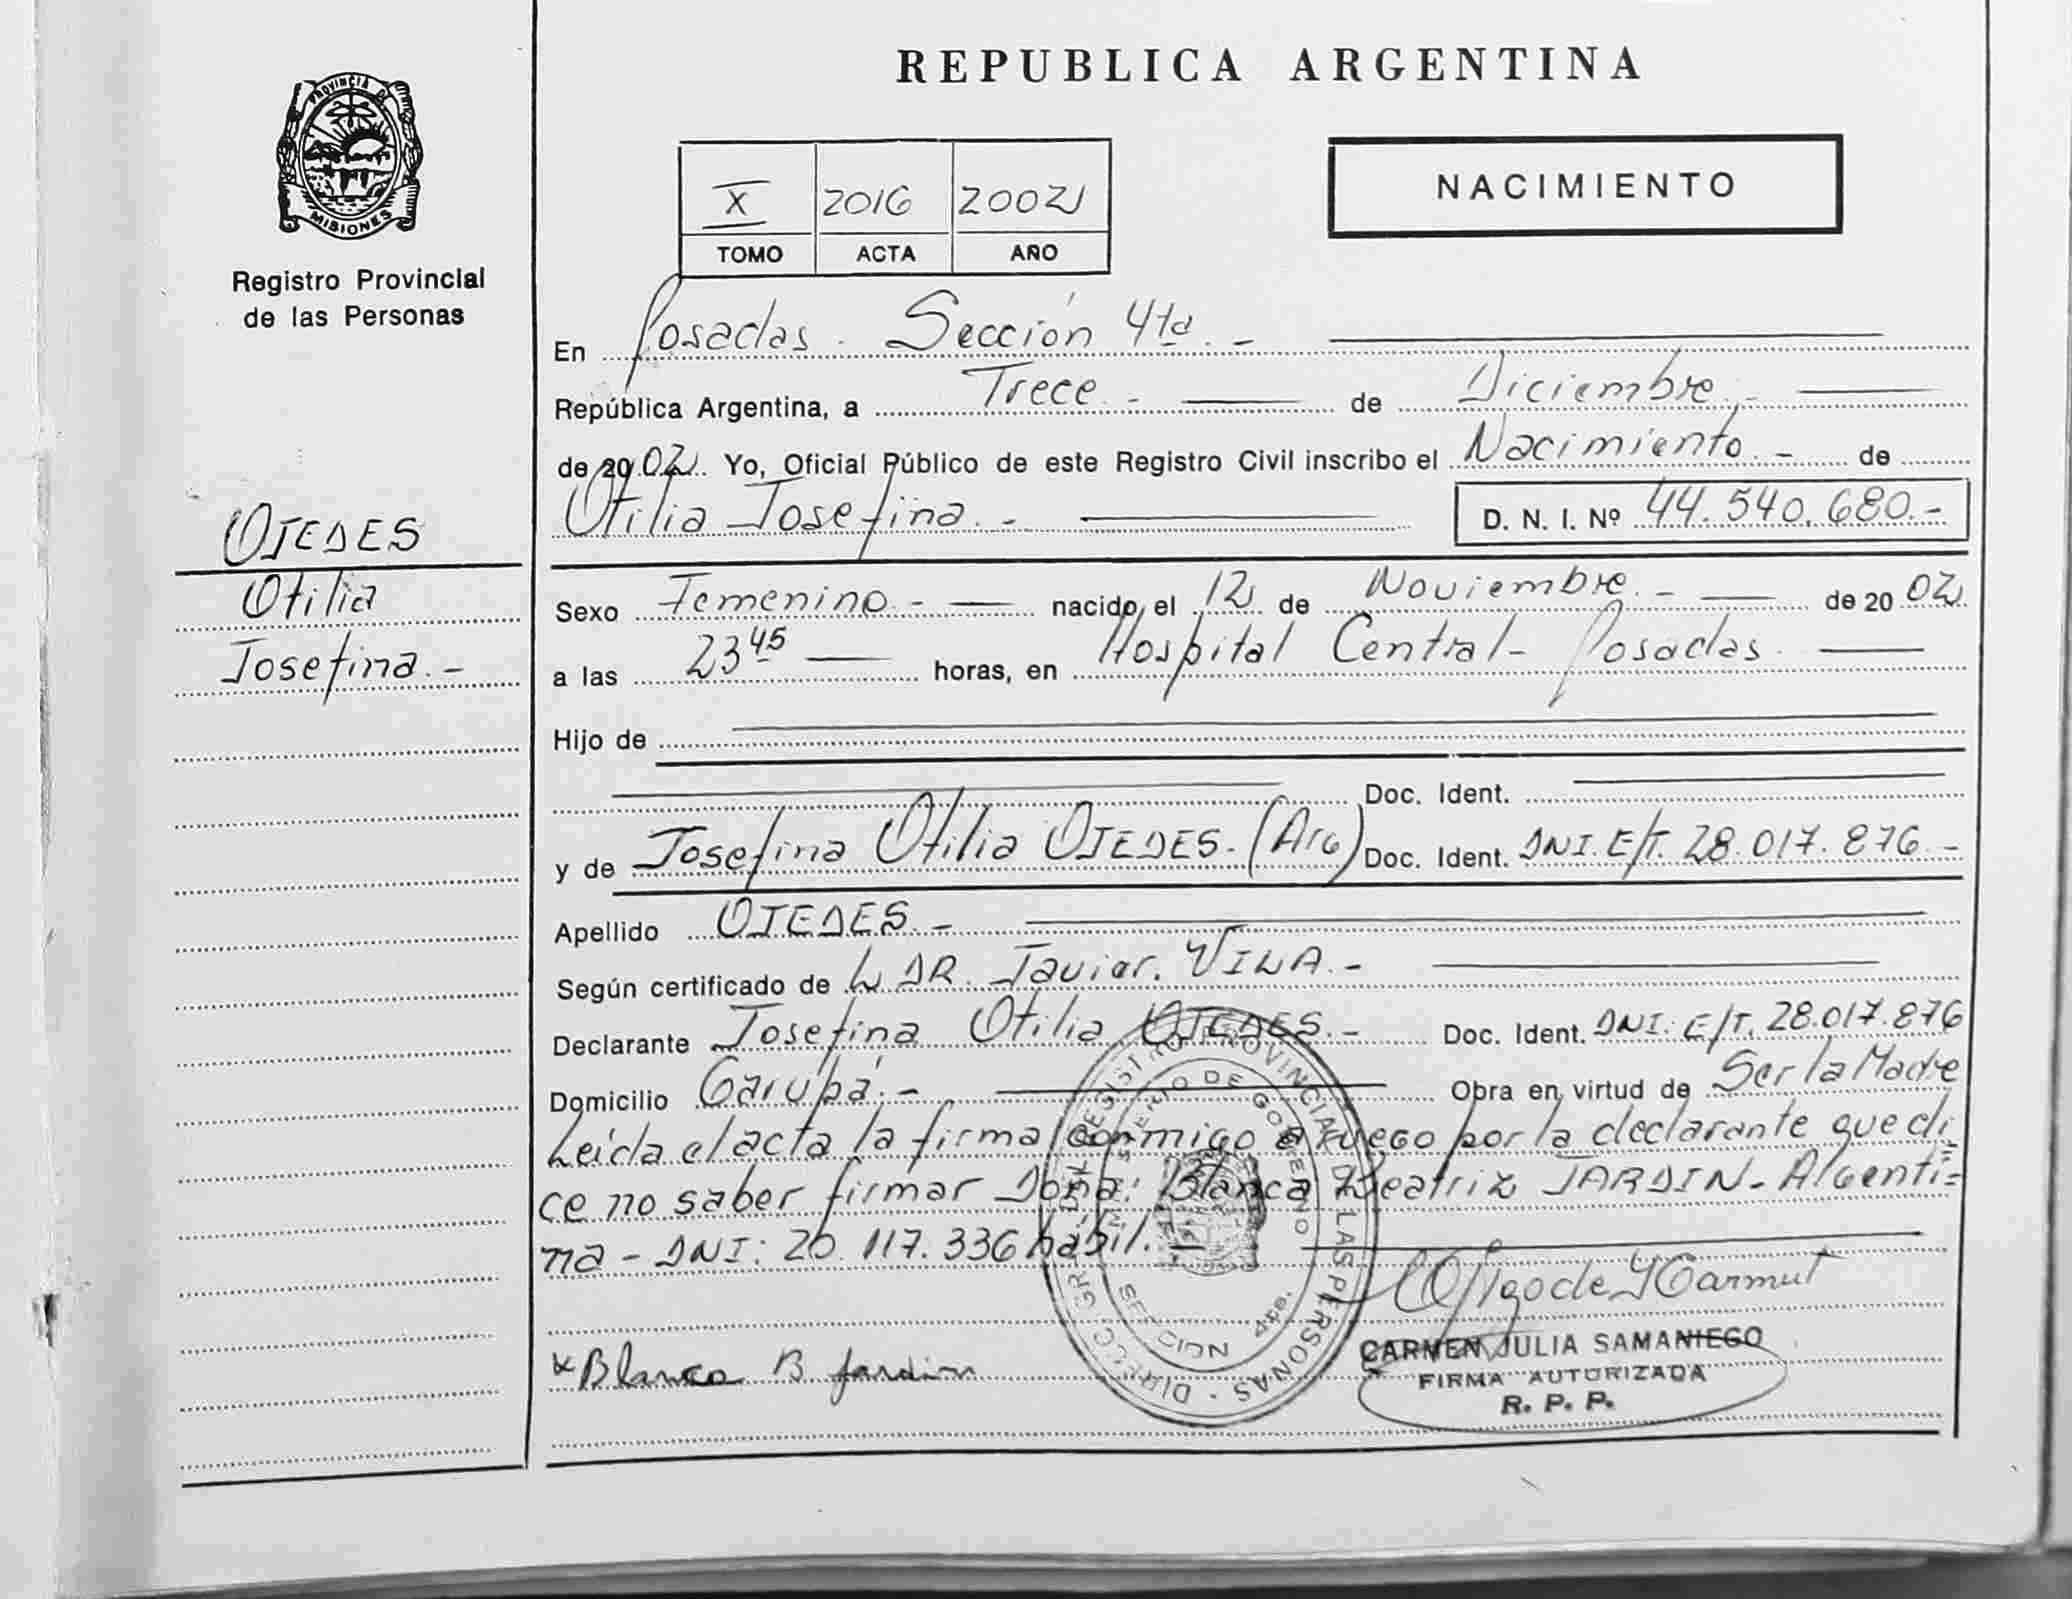 REPUBLICA ARGENTINA
PROVINCIA DE MISIONES
Registro Provincial
de las Personas
X 2016 2002
TOMO ACTA AÑO
NACIMIENTO
En Posadas. Sección 4ta. -
República Argentina, a Trece. - de Diciembre. -
de 2002. Yo, Oficial Público de este Registro Civil inscribo el Nacimiento. - de
Otilia Josefina. - D. N. I. Nº 44.540.680.-
OJEDES
Otilia
Josefina. -
Sexo Femenino. - nacido, el 12 de Noviembre. - de 2002
a las 23 45 horas, en Hospital Central - Posadas.
Hijo de
Doc. Ident.
y de Josefina Otilia OJEDES. (Arg) Doc. Ident. DNI. E/T. 28.017.876. -
Apellido OJEDES. -
Según certificado de L DR. Javier. VILA. -
Declarante Josefina Otilia OJEDES. - Doc. Ident. DNI: E/T. 28.017.876
Domicilio Garupá. - Obra en virtud de Ser la Madre
Leída el acta la firma conmigo a ruego por la declarante que di-
ce no saber firmar Doña: Blanca Beatriz JARDIN - Argenti=
na - DNI: 20.117.336 hábil. -
DIRECC. GRAL. DEL REGISTRO PROVINCIAL DE LAS PERSONAS
MINISTERIO DE GOBIERNO
SECCION 4ta.
x Blanca B Jardin
CARMEN JULIA SAMANIEGO
FIRMA AUTORIZADA
R. P. P.